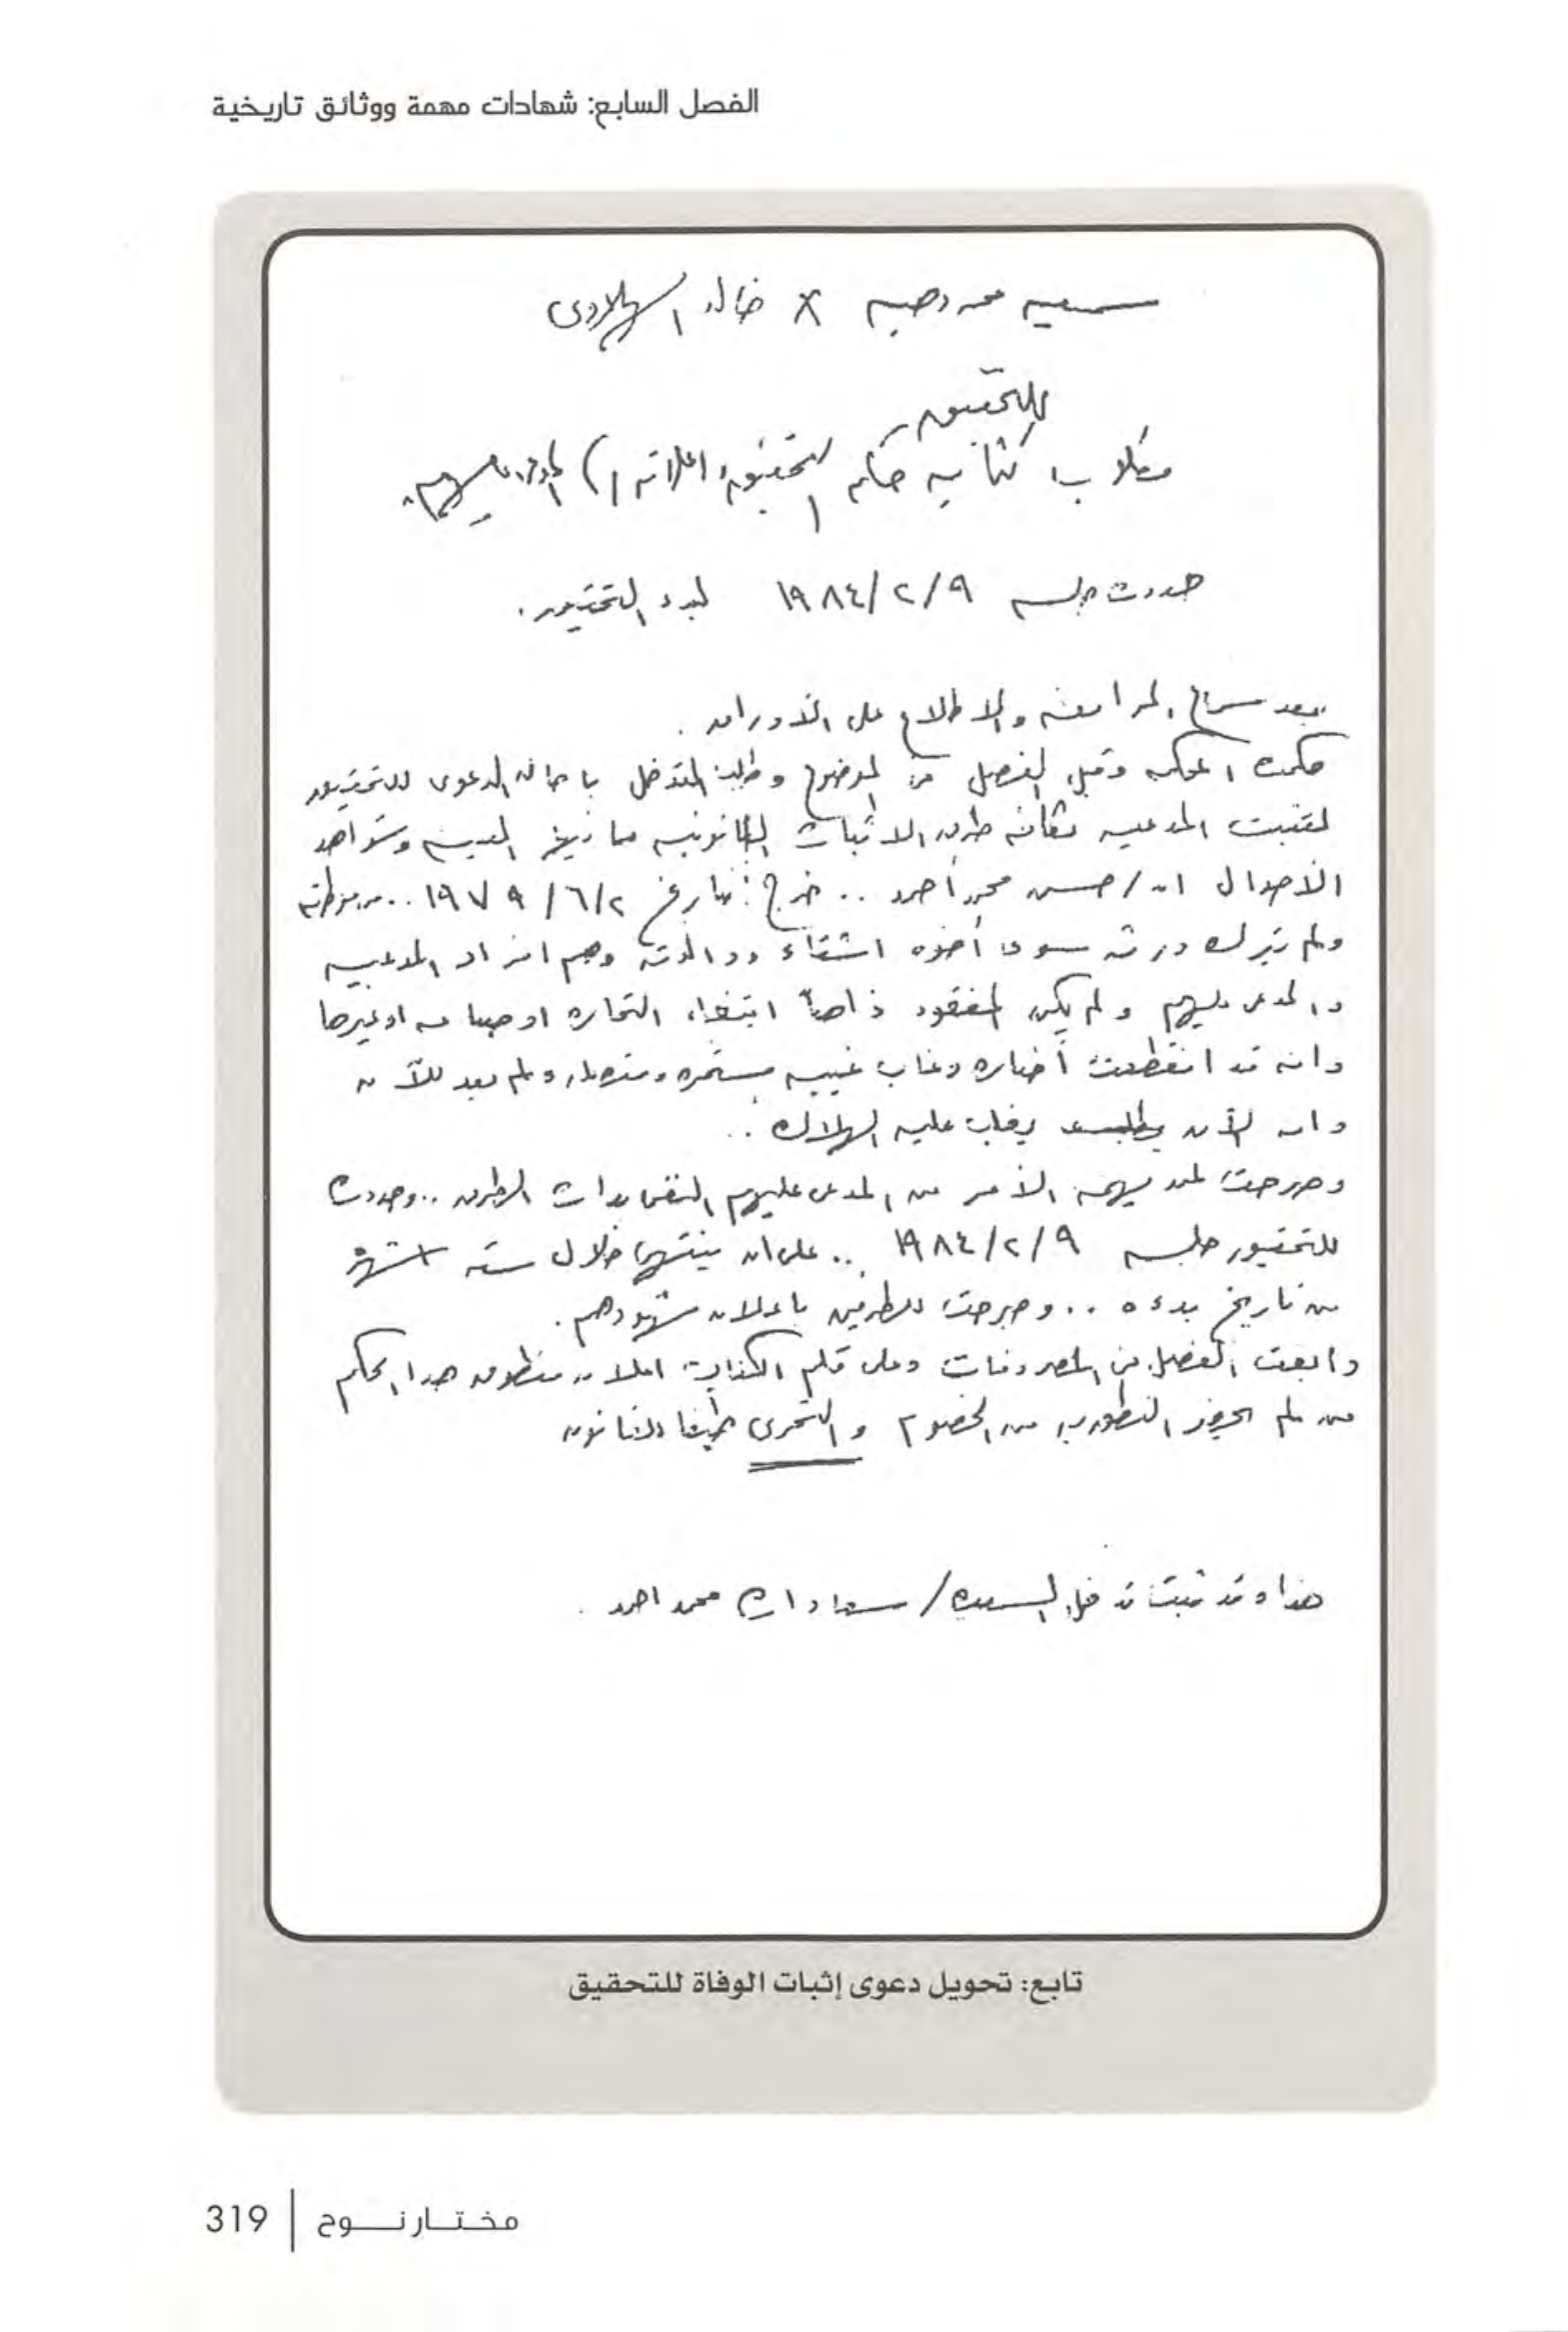 الفصل السابع: شهادات مهمة ووثائق تاريخية
سميه محمد وهبه × خالد
للتحقيق
كتابيه حكم التحقيق
حددت جلسه ١٩٨٤/٢/٩ لبدء التحقيق.
بعد سماع المرافعه والاطلاع على الأوراق.
حكمت المحكمه وقبل الفصل فى الموضوع وطلب التدخل باحالة الدعوى للتحقيق
لتثبت المدعيه بكافه طرق الاثبات القانونيه بما فيها البينه وشواهد
الأحوال ان/حسن محمد أحمد .. خرج بتاريخ ١٩٧٩/٦/٢ ..
ولم يترك ورثه سوى أخوه اشقاء ووالدته وهم افراد المدعيه
والمدعى عليهم ولم يكن المفقود ذاهباً ابتغاء التجاره او صياعه او غيرها
وانه قد انقطعت أخباره وغاب غيبه مستمره ومتصله ولم يعد للآن
وانه الآن يغلب عليه الهلاك ..
وصرحت لمن يهمه الأمر من المدعى عليهم النفى بذات الطرق .. وحددت
للتحقيق جلسه ١٩٨٤/٢/٩ .. على ان ينتهى خلال سته اشهر
من تاريخ بدءه .. وصرحت للطرفين باعلان شهودهم.
وابقت الفصل فى المصروفات وعلى قلم الكتاب اعلان منطوق هذا الحكم
من لم يحضر النطق به من الخصوم والتحرى طبقا للقانون
هذا وقد ثبت تدخل السيده/ سعاد محمد احمد.
تابع: تحويل دعوى إثبات الوفاة للتحقيق
319 | مختار نوح